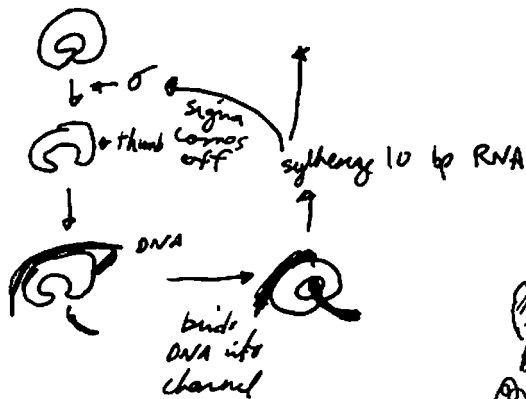 σ
thumb
sigma
comes
off
sythenize 10 bp RNA
DNA
binds
DNA into
channel